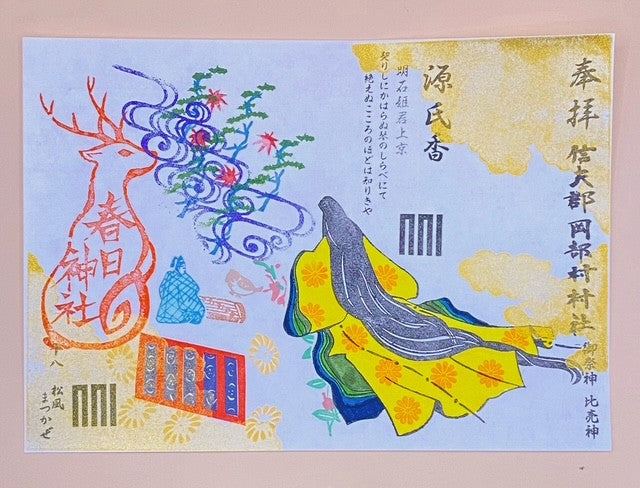 奉拝
信夫郡岡部村村社
御祭神 比売神
源氏香
明石姫君上京
契りしにかはらぬ琴のしらべにて
絶えぬこころのほどは知りきや
春日
神社
十八
松風
まつかぜ